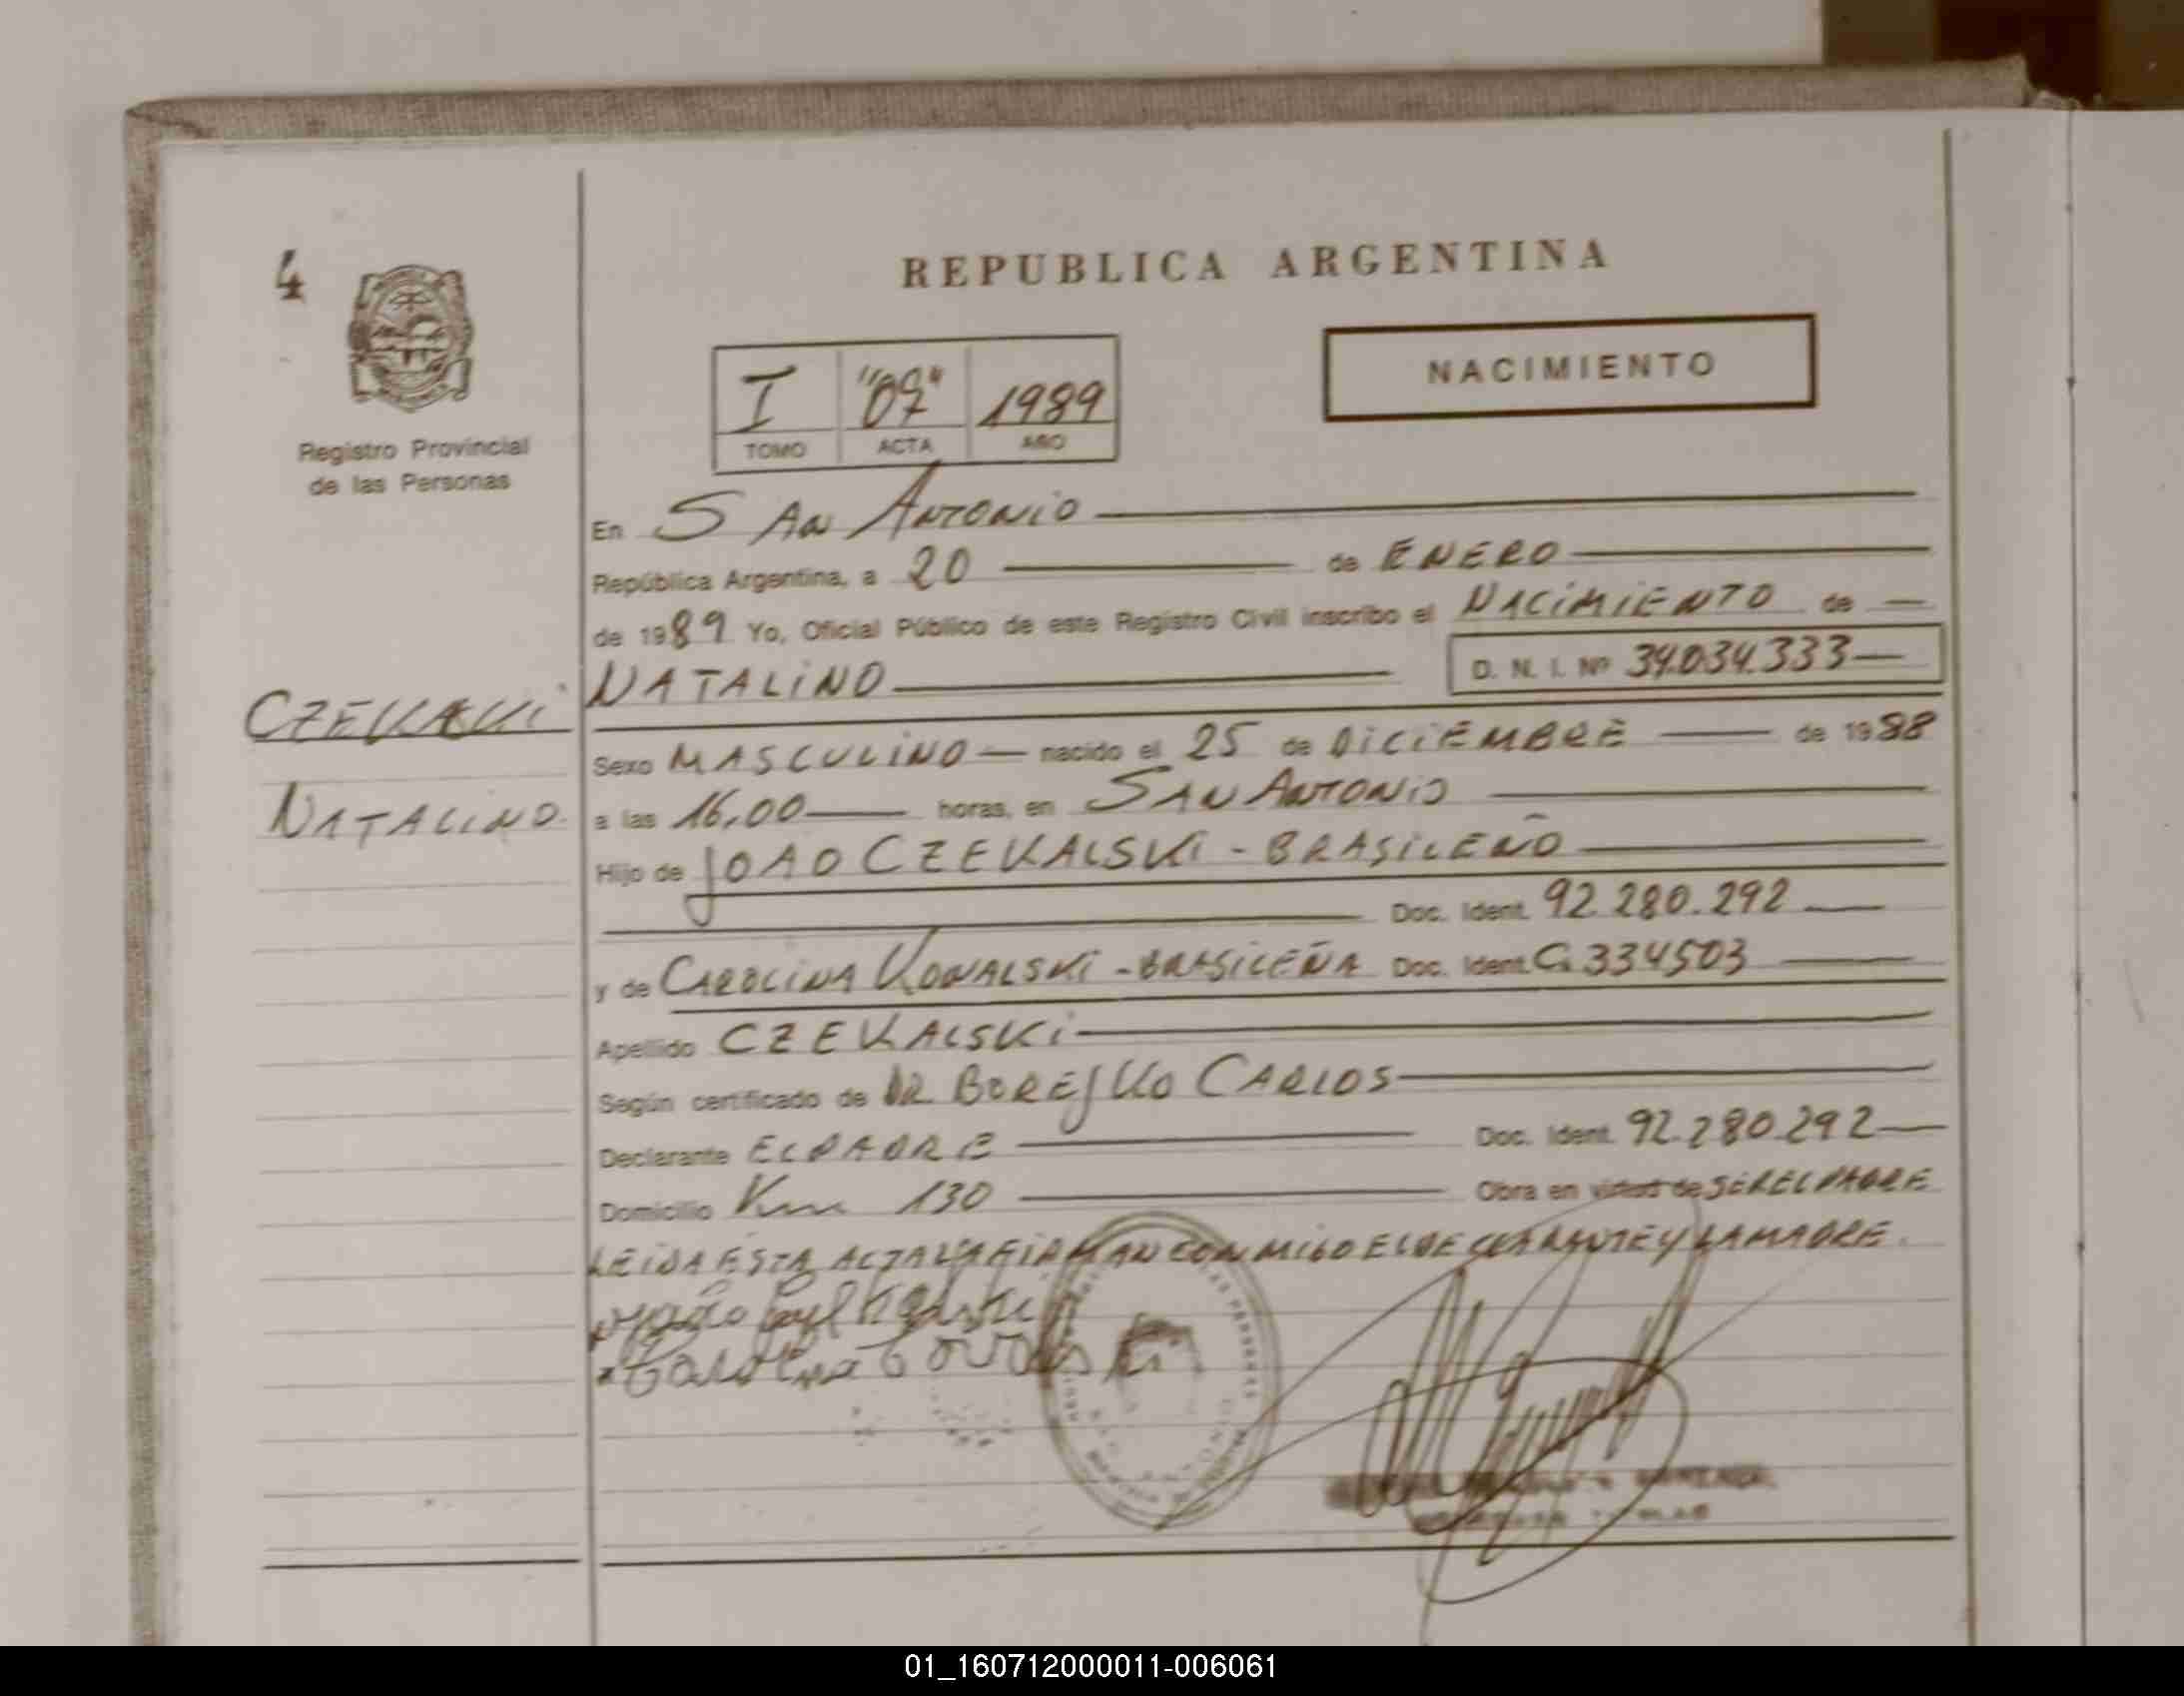 4
REPUBLICA ARGENTINA
NACIMIENTO
I "07" 1989
TOMO ACTA AÑO
Registro Provincial
de las Personas
En SAN ANTONIO
República Argentina, a 20 de ENERO
de 1989 Yo, Oficial Público de este Registro Civil inscribo el NACIMIENTO de
NATALINO D. N. I. Nº 34.034.333
CZEKALSKI
Sexo MASCULINO nacido el 25 de DICIEMBRE de 1988
NATALINO
a las 16,00 horas, en SAN ANTONIO
Hijo de JOAO CZEKALSKI - BRASILEÑO
Doc. Ident. 92.280.292
y de CAROLINA KOWALSKI - BRASILEÑA Doc. Ident. C. 334503
Apellido CZEKALSKI
Según certificado de DR BOREJKO CARLOS
Declarante EL PADRE Doc. Ident. 92.280.292
Domicilio Km 130 Obra en virtud de SER EL PADRE
LEIDA ESTA ACTA LA FIRMAN CONMIGO EL DECLARANTE Y LA MADRE.
01_160712000011-006061